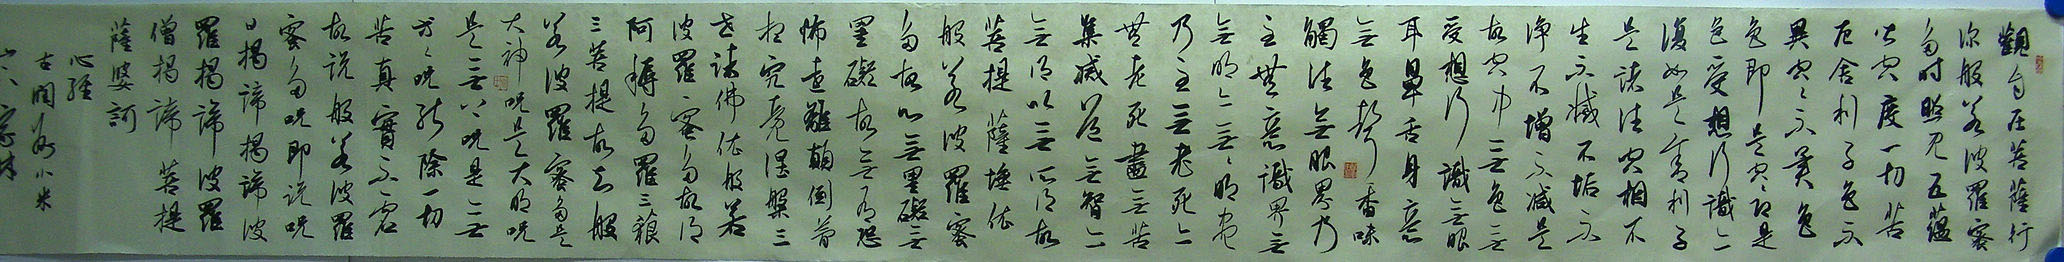 觀自在菩薩行
深般若波羅蜜
多時照見五蘊
皆空度一切苦
厄舍利子色不
異空空不異色
色即是空空即是
色受想行識亦
復如是舍利子
是諸法空相不
生不滅不垢不
淨不增不減是
故空中無色無
受想行識無眼
耳鼻舌身意
無色聲香味
觸法無眼界乃
至無意識界無
無明亦無無明盡
乃至無老死亦
無老死盡無苦
集滅道無智亦
無得以無所得故
菩提薩埵依
般若波羅蜜
多故心無罣礙無
罣礙故無有恐
怖遠離顛倒夢
想究竟涅槃三
世諸佛依般若
波羅蜜多故得
阿耨多羅三藐
三菩提故知般
若波羅蜜多是
大神咒是大明咒
是無上咒是無
等等咒能除一切
苦真實不虛
故說般若波羅
蜜多咒即說咒
曰揭諦揭諦波
羅揭諦波羅
僧揭諦菩提
薩婆訶
心經
小米